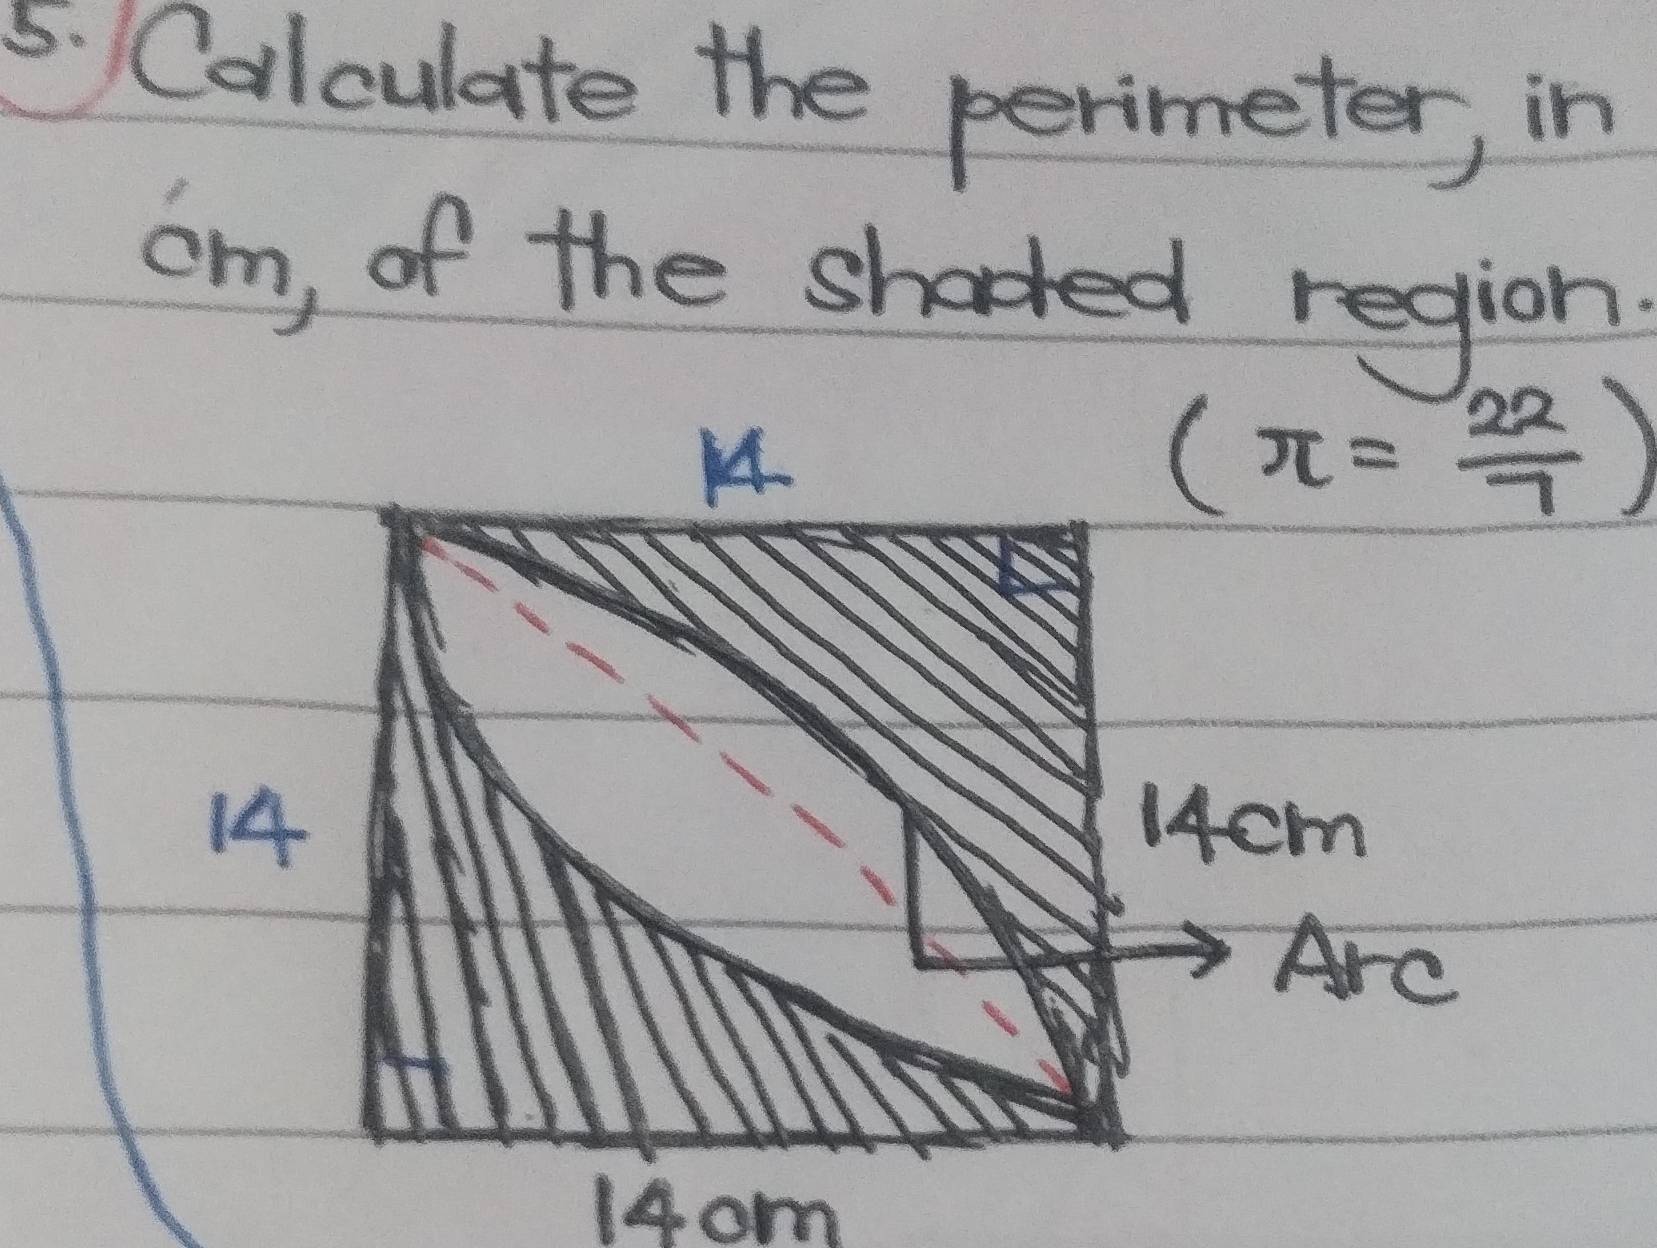 5. Calculate the perimeter, in
cm, of the shaded region.
(π = 22/7)
14
14
14cm
Arc
14cm